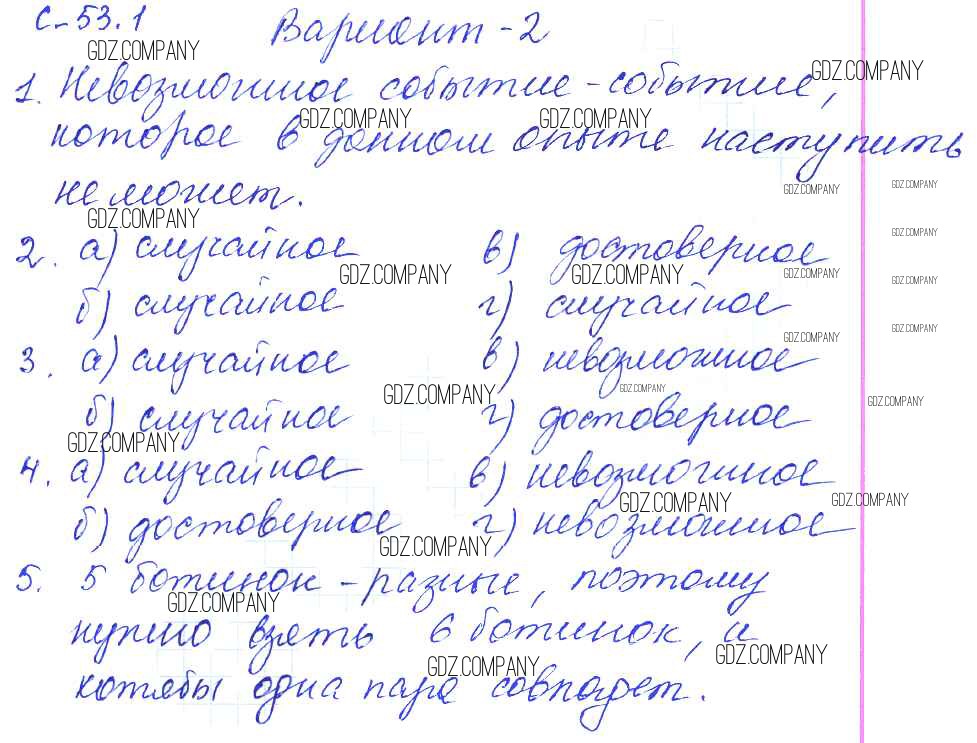 С-53.1 Вариант-2
GDZ.COMPANY
1. Невозможное событие - событие,
GDZ.COMPANY
GDZ.COMPANY GDZ.COMPANY
которое в данном опыте наступить
не может.
GDZ.COMPANY GDZ.COMPANY
GDZ.COMPANY
2. а) случайное в) достоверное
GDZ.COMPANY
GDZ.COMPANY GDZ.COMPANY GDZ.COMPANY GDZ.COMPANY
б) случайное г) случайное
GDZ.COMPANY GDZ.COMPANY
3. а) случайное в) невозможное
GDZ.COMPANY GDZ.COMPANY GDZ.COMPANY
б) случайное г) достоверное
GDZ.COMPANY
4. а) случайное в) невозможное
GDZ.COMPANY GDZ.COMPANY
б) достоверное г) невозможное
GDZ.COMPANY
5. 5 ботинок - разные, поэтому
GDZ.COMPANY
нужно взять 6 ботинок, и
GDZ.COMPANY GDZ.COMPANY
хотябы одна пара совпадет.